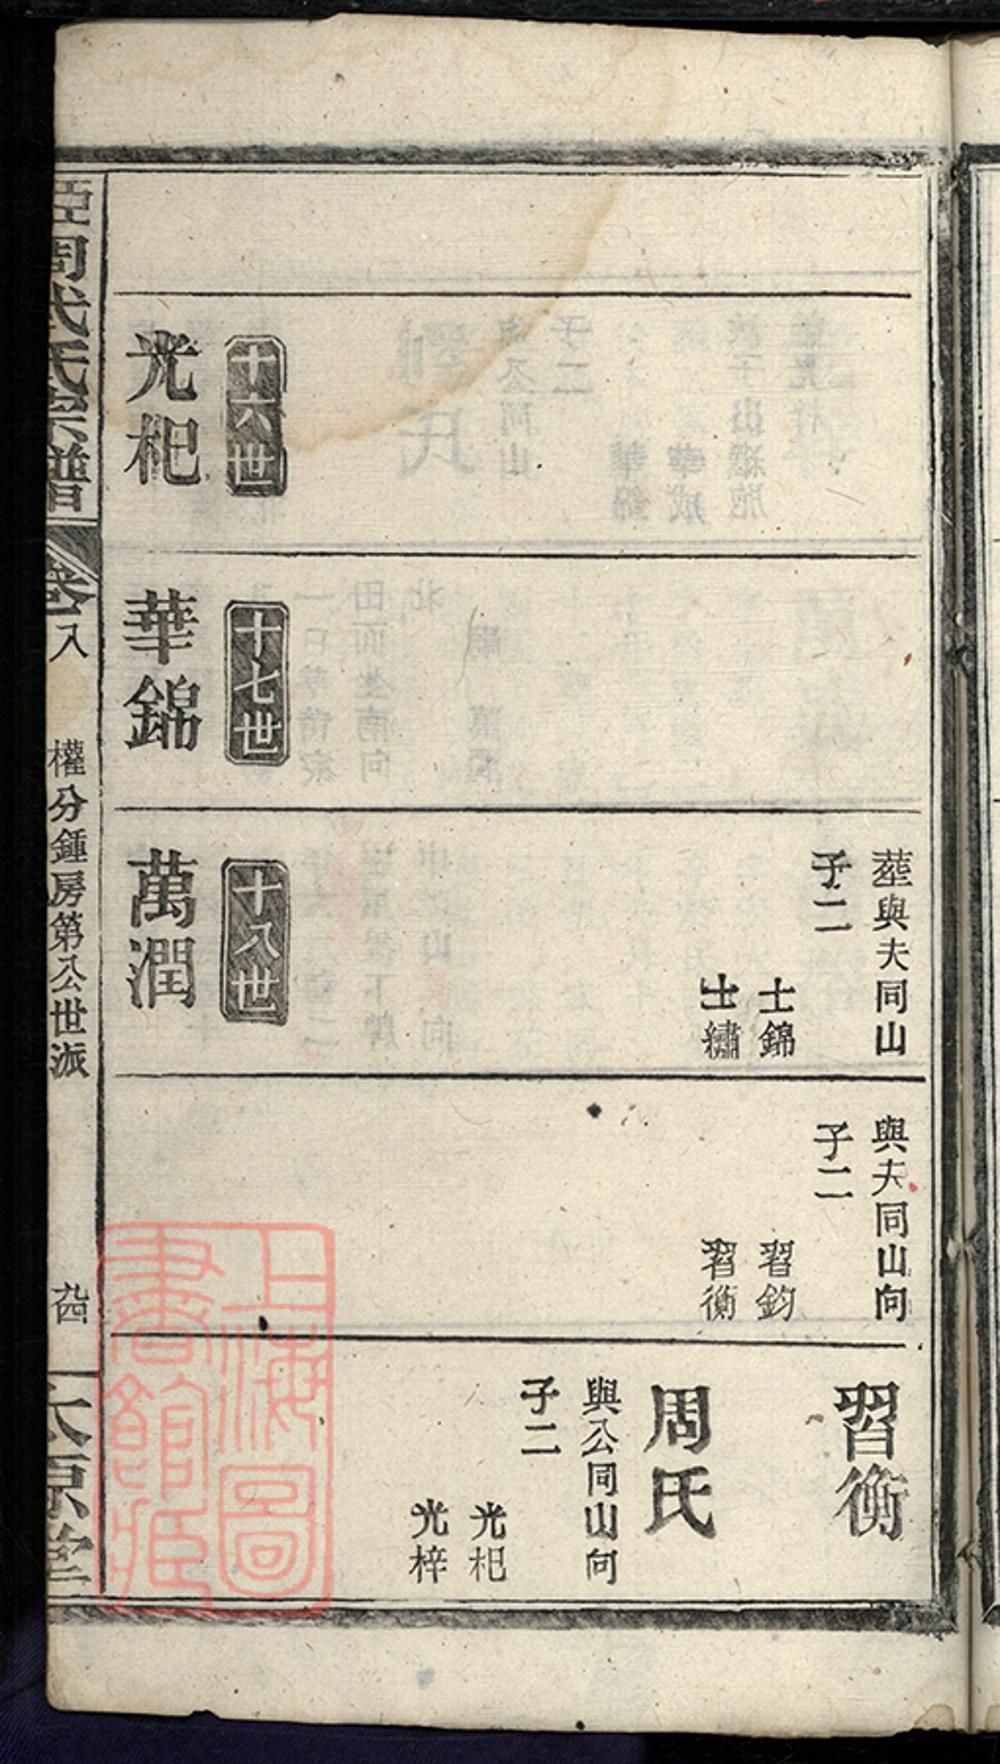 葬與夫同山
子二
士錦
士繡
十六世
光杞
十七世
華錦
十八世
萬潤
與夫同山向
子二
習鈞
習衡
習衡
周氏
與公同山向
子二
光杞
光梓
周氏宗譜
卷八
權分鍾房第公世派
太原堂
上海圖
書館藏